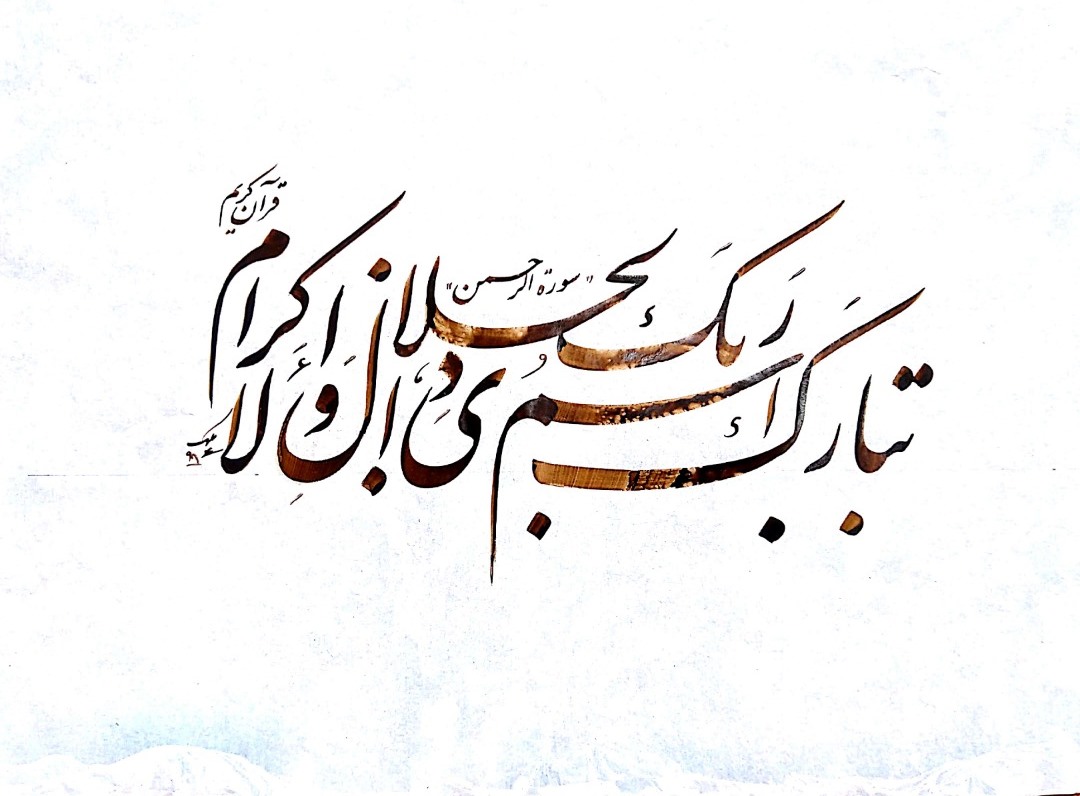 تبارک اسم ربک ذی الجلال و الاکرام
"سورة الرحمن"
قرآن کریم